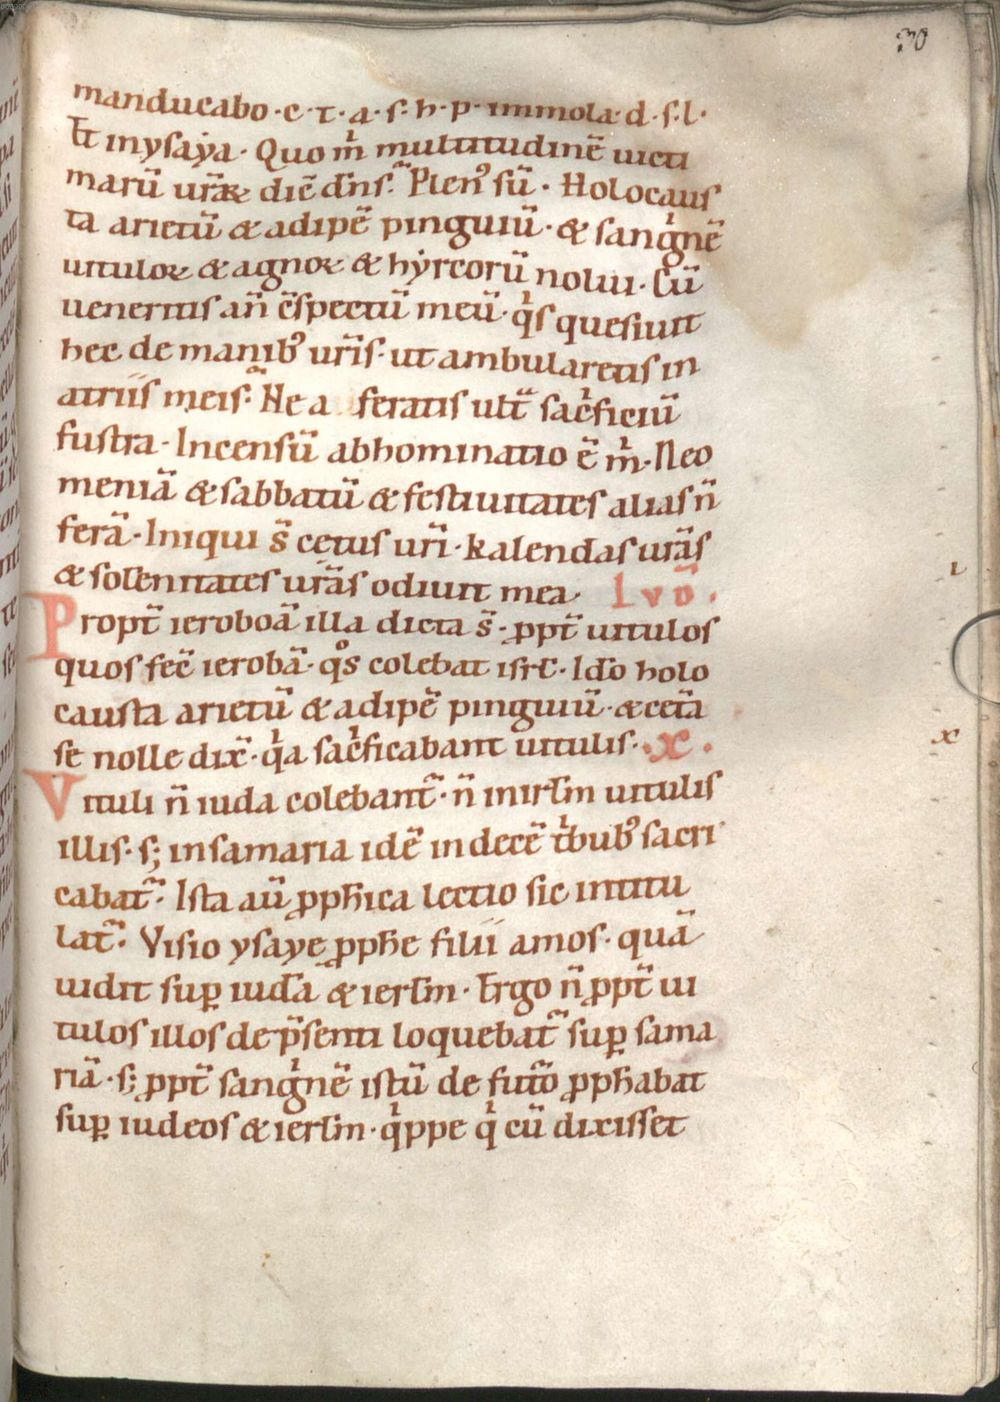 30
manducabo · c · t · a · s · h · p · immola · d · s · l ·
Et in ysaẏa · Quo m̓ multitudinē uicti
marū ur̄aꝝ diē dn̄s · Plen᷒ sū · Holocaus
ta arietū & adipē pinguiū · & sang̓nē
uituloꝝ & agnoꝝ & hẏrcorū nolui · Cū
ueneritis an̄ c̄spectū meū · q̓s quesiuit
hec de manib᷒ ur̄is · ut ambularetis in
atriis meis · Ne a feratis ult̄ sac̓ficiū
fustra · Incensū abhominatio ē m̓ · Neo
meniā & sabbatū & festiuitates alias n̄
ferā · Iniqui s̄ cetus ur̄i · kalendas ur̄as
& solennitates ur̄as odiuit mea · Lvō ·
Propt̄ ieroboā illa dicta s̄ · ꝓpt̄ uitulos
quos fec̄ ierobā · qͦs colebat isrł · Ido holo
causta arietū & adipē pinguiū · & cet̄a
se nolle dix̄ · q̓a sac̓ficabant uitulis · X ·
Vituli n̄ iuda colebant᷑ · n̄ in irłm uitulis
illis · s; in samaria idē in decē t̓bub᷒ sacri
cabat᷑ · Ista aū ꝓpħica lectio sic intitu
lat᷑ · Visio ysaye ꝓpħe filii amos · quā
uidit suꝑ iudā & ierłm · Ergo n̄ ꝓpt̄ ui
tulos illos de p̄senti loquebat᷑ suꝑ sama
riā · s; ꝓpt̄ sang̓nē istū de fut̄o ꝓpħabat
suꝑ iudeos & ierłm · q̓ppe q̓ cū dixisset
ı
x